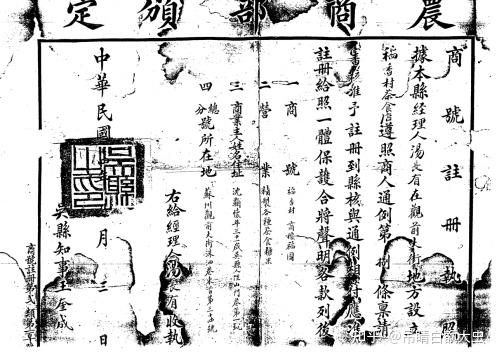 農商部頒定
商號註冊執照
據本縣經理人湯長有在觀前東街地方設立
稻香村茶食店遵照商人通例第捌條稟請
准予註冊到縣核與通例相符應准
註冊給照一體保護合將聲明各款列後
一商號 稻香村
二營業 精製各種茶食糖果
三商業主人姓名住址
四總分號所在地 蘇州觀前大街
右給經理人湯長有收執
中華民國 月 日
吳縣知事王奎成
商號註冊第弍類第
知乎 @吊睛白额大虫